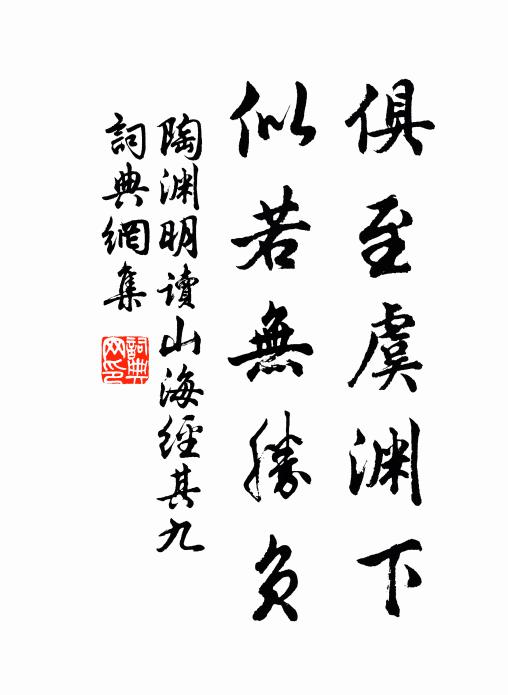 俱至虞渊下
似若無勝負
陶渊明讀山海經其九
詞典網集
詞典网印